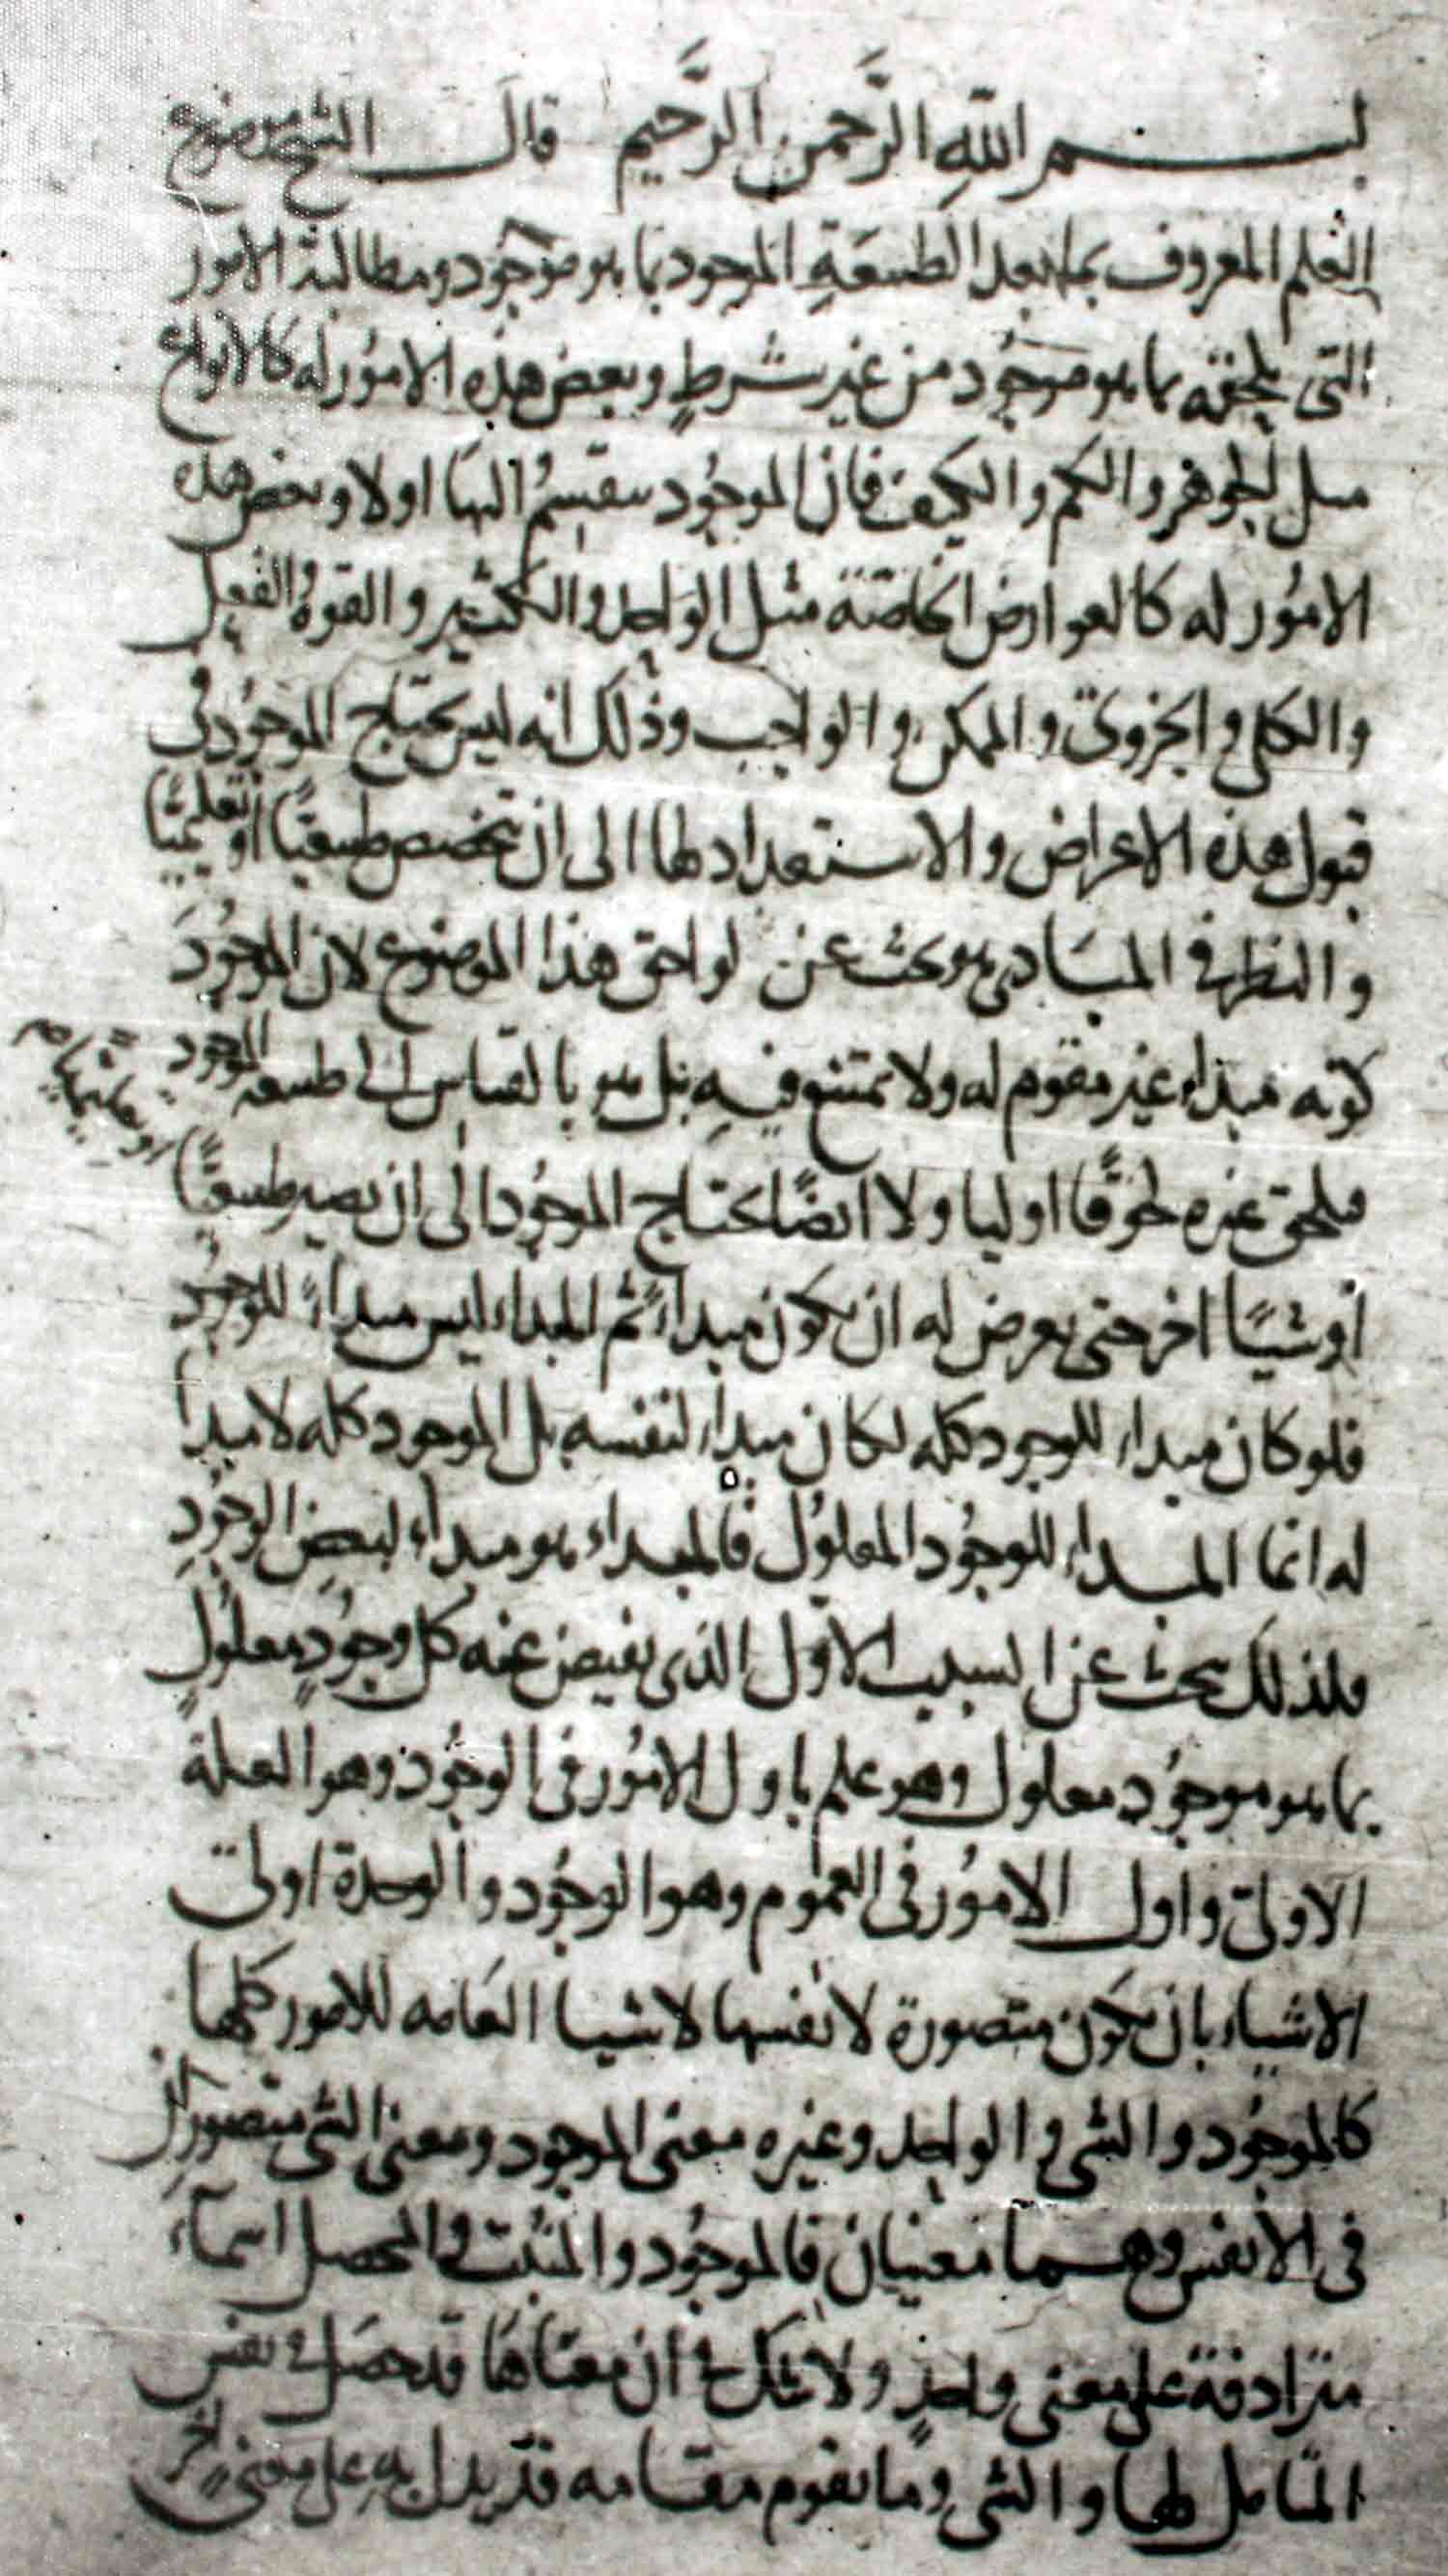 بسم الله الرحمن الرحيم قال الشيخ موضوع
العلم المعروف بما بعد الطبيعة الموجود بما هو موجود ومطالبه الامور
التي تلحقه بما هو موجود من غير شرط وبعض هذه الامور له كالانواع
مثل الجوهر والكم والكيف فان الموجود ينقسم اليها اولا وبعض هذه
الامور له كالعوارض الخاصة مثل الواحد والكثير والقوة والفعل
والكلي والجزوي والممكن والواجب وذلك انه ليس يحتاج الموجود في
قبول هذه الاعراض والاستعداد لها الى ان يتخصص طبيعيا او تعليميا
والنظر في المبادي هو بحث عن لواحق هذا الموضوع لان الموجود
كونه مبداء غير مقوم له ولا ممتنع فيه بل هو بالقياس الى طبيعة الموجود
يلحق غيره لحوقا اوليا ولا ايضا يحتاج الموجود الى ان يصير طبيعيا
او تعليميا
او شيئا اخر حتى يعرض له ان يكون مبداء ثم المبداء ليس مبداء للموجود
فلو كان مبداء للموجود كله لكان مبداء لنفسه بل الموجود كله لا مبداء
له انما المبداء للموجود المعلول فالمبداء هو مبداء لبعض الوجود
فلذلك يبحث عن السبب الاول الذي يفيض عنه كل وجود معلول
بما هو موجود معلول وهو علم باول الامور في الوجود وهو العلة
الاولى واول الامور في العموم وهو الوجود والوحدة اولى
الاشياء بان يكون متصورة لانفسها لاشيا العامه للامور كلها
كالموجود والشي والواحد وغيره معنى الموجود ومعنى الشي متصوران
في الانفس وهما معنيان فالموجود والمثبت والمحصل اسماء
مترادفة على معنى واحد ولا نشك في ان معناها قد حصل في نفس
المتامل لها والشي وما يقوم مقامه قد يدل به على معنى اخر